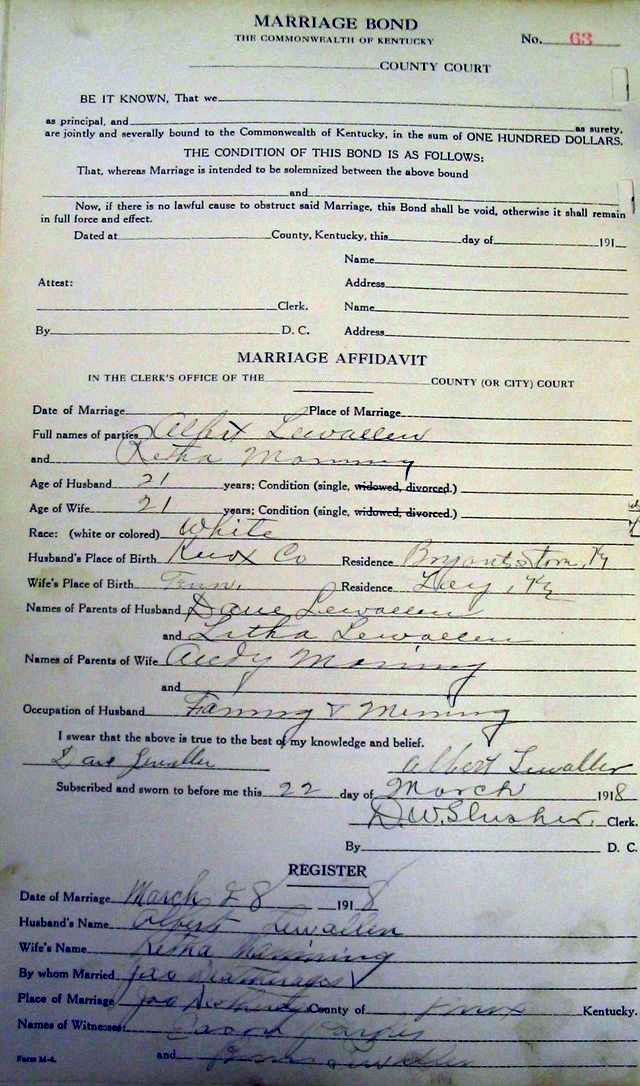 MARRIAGE BOND
THE COMMONWEALTH OF KENTUCKY
No. 63
COUNTY COURT
BE IT KNOWN, That we
as principal, and as surety,
are jointly and severally bound to the Commonwealth of Kentucky, in the sum of ONE HUNDRED DOLLARS.
THE CONDITION OF THIS BOND IS AS FOLLOWS:
That, whereas Marriage is intended to be solemnized between the above bound
and
Now, if there is no lawful cause to obstruct said Marriage, this Bond shall be void, otherwise it shall remain
in full force and effect.
Dated at County, Kentucky, this day of 191
Name
Attest: Address
Clerk. Name
By D. C. Address
MARRIAGE AFFIDAVIT
IN THE CLERK'S OFFICE OF THE COUNTY (OR CITY) COURT
Date of Marriage Place of Marriage
Full names of parties Albert Lewallen
and Retha
Age of Husband 21 years; Condition (single, widowed, divorced.)
Age of Wife 21 years; Condition (single, widowed, divorced.)
Race: (white or colored) White
Husband's Place of Birth Knox Co Residence Ky
Wife's Place of Birth Tenn. Residence Ky
Names of Parents of Husband Dave Lewallen
and Litha Lewallen
Names of Parents of Wife Andy
and
Occupation of Husband Faming & Mining
I swear that the above is true to the best of my knowledge and belief.
Dave Lewallen Albert Lewallen
Subscribed and sworn to before me this 22 day of March 1918
D.W. Slusher, Clerk.
By D. C.
REGISTER
Date of Marriage March 28 1918
Husband's Name Albert Lewallen
Wife's Name Retha
By whom Married Jas
Place of Marriage County of Knox Kentucky.
Names of Witnesses
Form M-4. and Lewallen